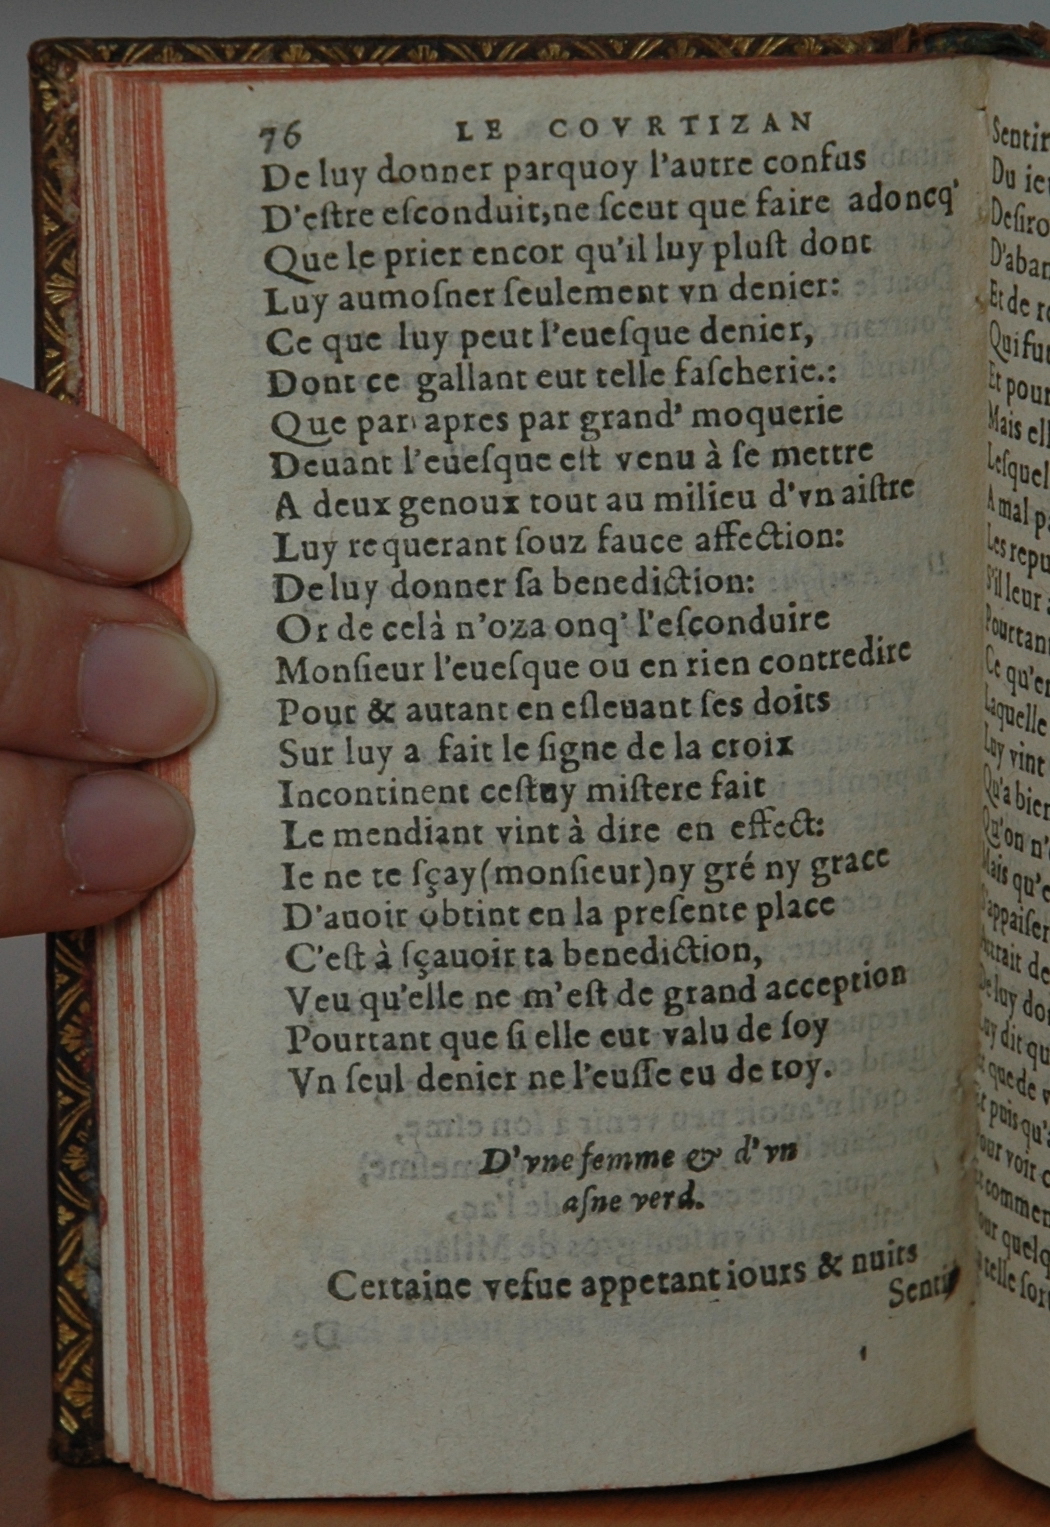 76 LE COVRTIZAN
De luy donner parquoy l'autre confus
D'eſtre eſconduit,ne ſceut que faire adoncq'
Que le prier encor qu'il luy pluſt dont
Luy aumoſner ſeulement vn denier:
Ce que luy peut l'eueſque denier,
Dont ce gallant eut telle faſcherie.:
Que par apres par grand' moquerie
Deuant l'eueſque eſt venu à ſe mettre
A deux genoux tout au milieu d'vn aiſtre
Luy requerant ſouz fauce affection:
De luy donner ſa benediction:
Or de celà n'oza onq' l'eſconduire
Monſieur l'eueſque ou en rien contredire
Pour & autant en eſleuant ſes doits
Sur luy a fait le ſigne de la croix
Incontinent ceſtuy miſtere fait
Le mendiant vint à dire en effect:
Ie ne te ſçay(monſieur)ny gré ny grace
D'auoir obtint en la preſente place
C'eſt à ſçauoir ta benediction,
Veu qu'elle ne m'eſt de grand acception
Pourtant que ſi elle eut valu de ſoy
Vn ſeul denier ne l'euſſe eu de toy.
D'vne femme & d'vn
aſne verd.
Certaine vefue appetant iours & nuits
Sentir
Du ie
Deſiro
D'aban
Et de re
Qui fut
Et pour
Mais ell
Leſquel
A mal p
Les repu
S'il leur
Pourtan
Ce qu'e
Laquelle
Luy vint
Qu'a bien
Qu'on n'
Mais qu'e
S'appaiſer
De luy do
Luy dit qu